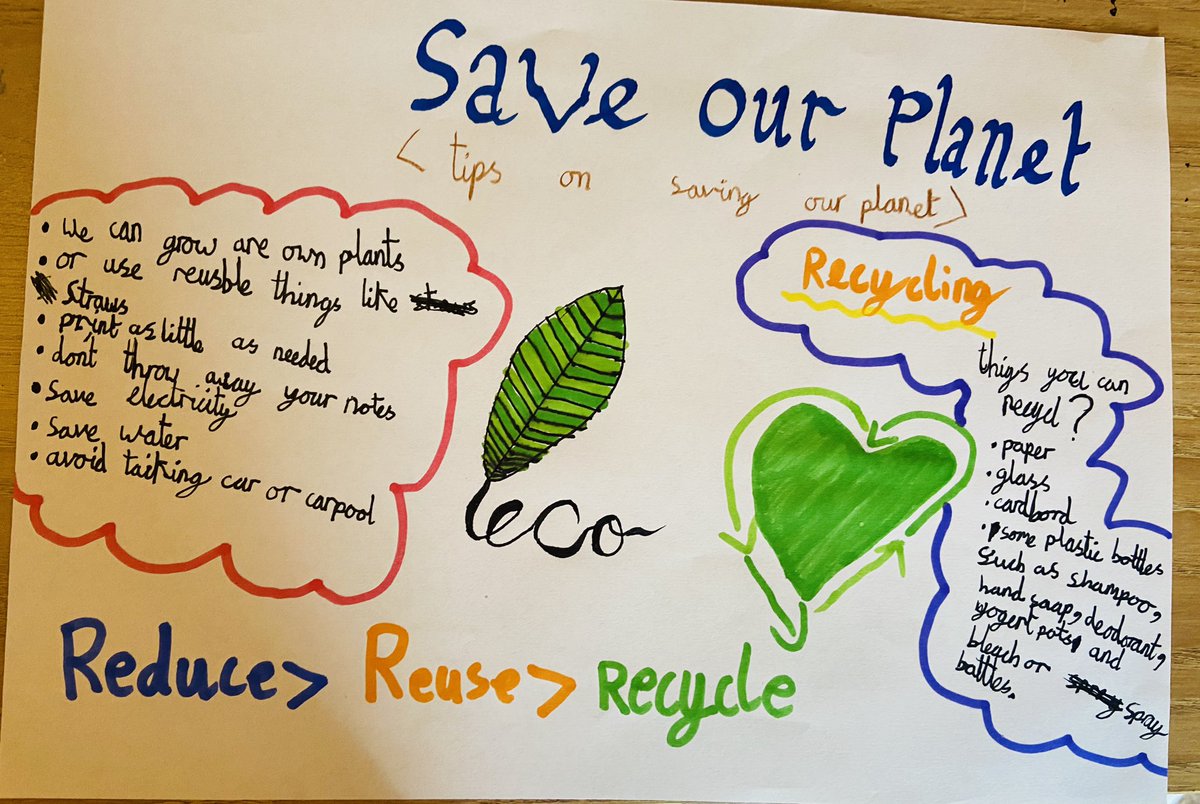 Save our Planet
< tips on saving our planet >
• We can grow are own plants
• or use reusble things like
straws
• print as little as needed
• dont throw away your notes
• Save electricity
• Save water
• avoid taiking car or carpool
eco
Recycling
thigs you can
recycl?
• paper
• glass
• cardbord
• some plastic bottles
such as shampoo,
hand soap, deodorant,
yogert pots, and
bleach or spray
battles.
Reduce> Reuse> Recycle